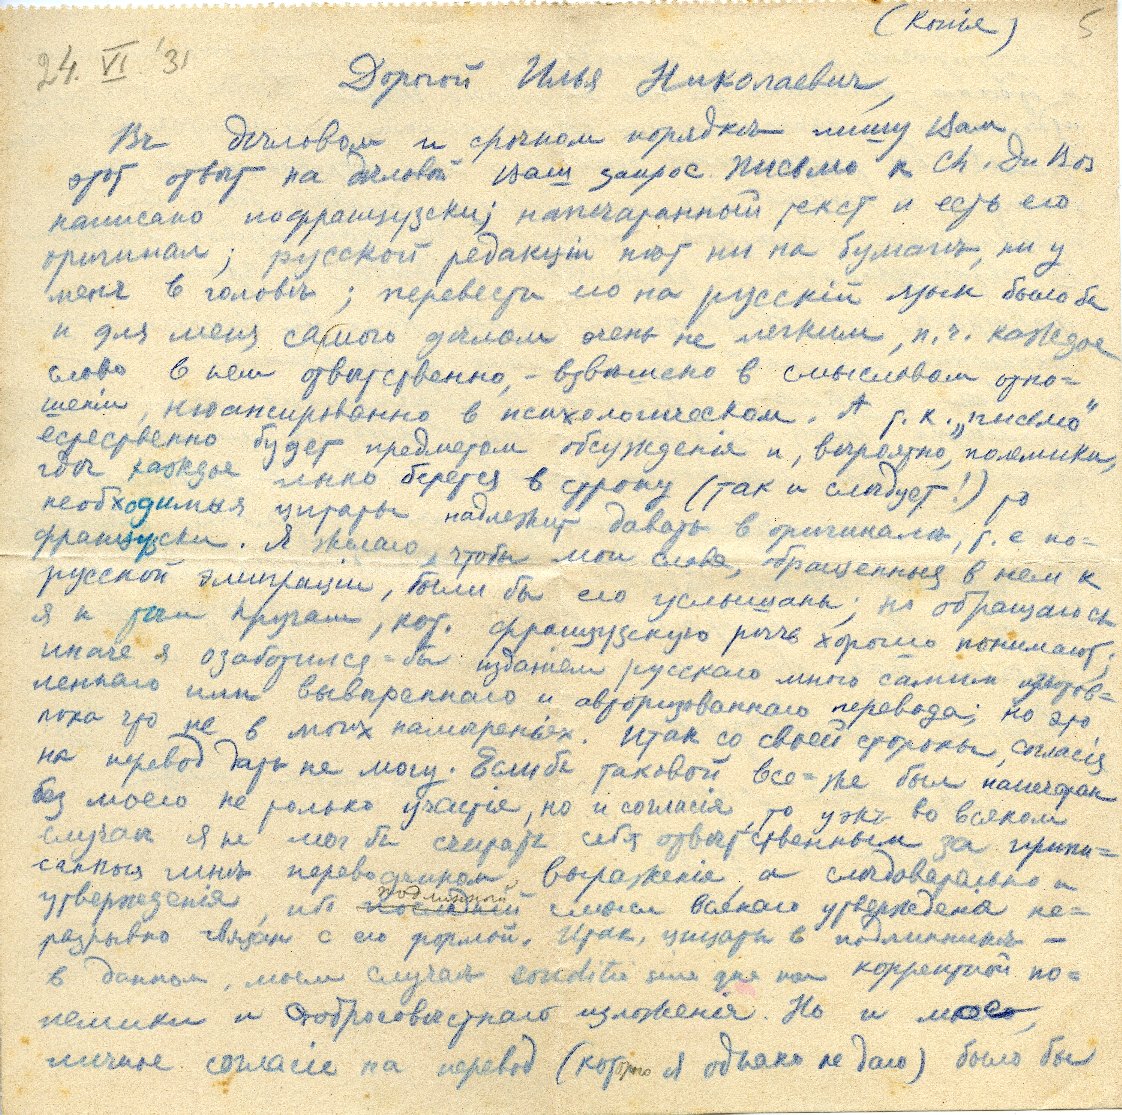 (Копія) 5
24. VI '31
Дорогой Илья Николаевич,
Въ дѣловом и срочном порядкѣ пишу Вам
этот отвѣт на дѣловой Ваш запрос. Письмо к Ch. Du Bos
написано пофранцузски; напечатанный текст и есть его
оригинал; русской редакціи нѣт ни на бумагѣ, ни у
меня в головѣ; перевести его на русскій язык было бы
и для меня самого дѣлом очень не легким, п. ч. каждое
слово в нем отвѣтственно, – взвѣшено в смысловом отно=
шеніи, нюансированно в психологическом. А т. к. „письмо"
естественно будет предметом обсужденія и, вѣроятно, полемики,
гдѣ каждое лыко берется в строку (так и слѣдует!) то
необходимыя цитаты надлежит давать в оригиналѣ, т. е по=
французски. Я желаю, чтобы мои слова, обращенныя в нем к
русской эмиграціи, были бы ею услышаны; но обращаюсь
я к тѣм кругам, кот. французскую рѣчь хорошо понимают;
иначе я озаботился=бы изданіем русскаго мною самим изготов=
леннаго или вывѣреннаго и авторизованнаго перевода; но это
пока что не в моих намѣреніях. Итак со своей стороны, согласія
на перевод дать не могу. Если бы таковой все=же был напечатан
без моего не только участія, но и согласія, то уже во всяком
случаѣ я не мог бы считать себя отвѣтственным за припи=
санныя мнѣ переводчиком выраженія, а слѣдовательно и
утвержденія, ибо подлинный смысл всякаго утвержденія не=
разрывно связан с его формой. Итак, цитаты в подлинникѣ —
в данном, моем случаѣ conditio sine qua non корректной по=
лемики и добросовѣстнаго изложенія. Но и мое,
личное согласіе на перевод (которого я однако не даю) было бы